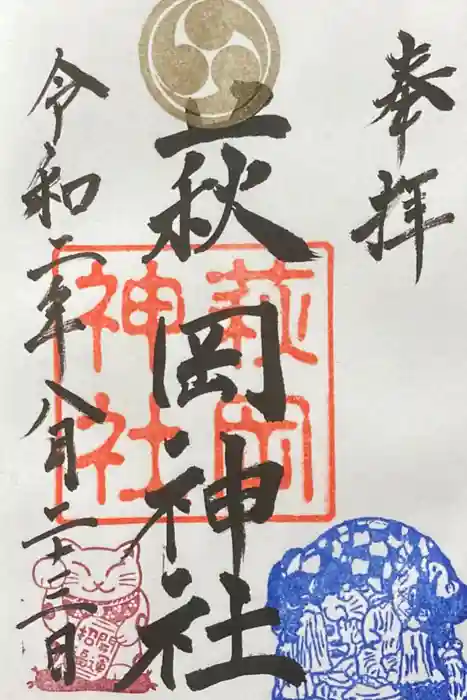 奉拝
萩岡神社
萩岡神社
令和二年八月二十三日
招福開運